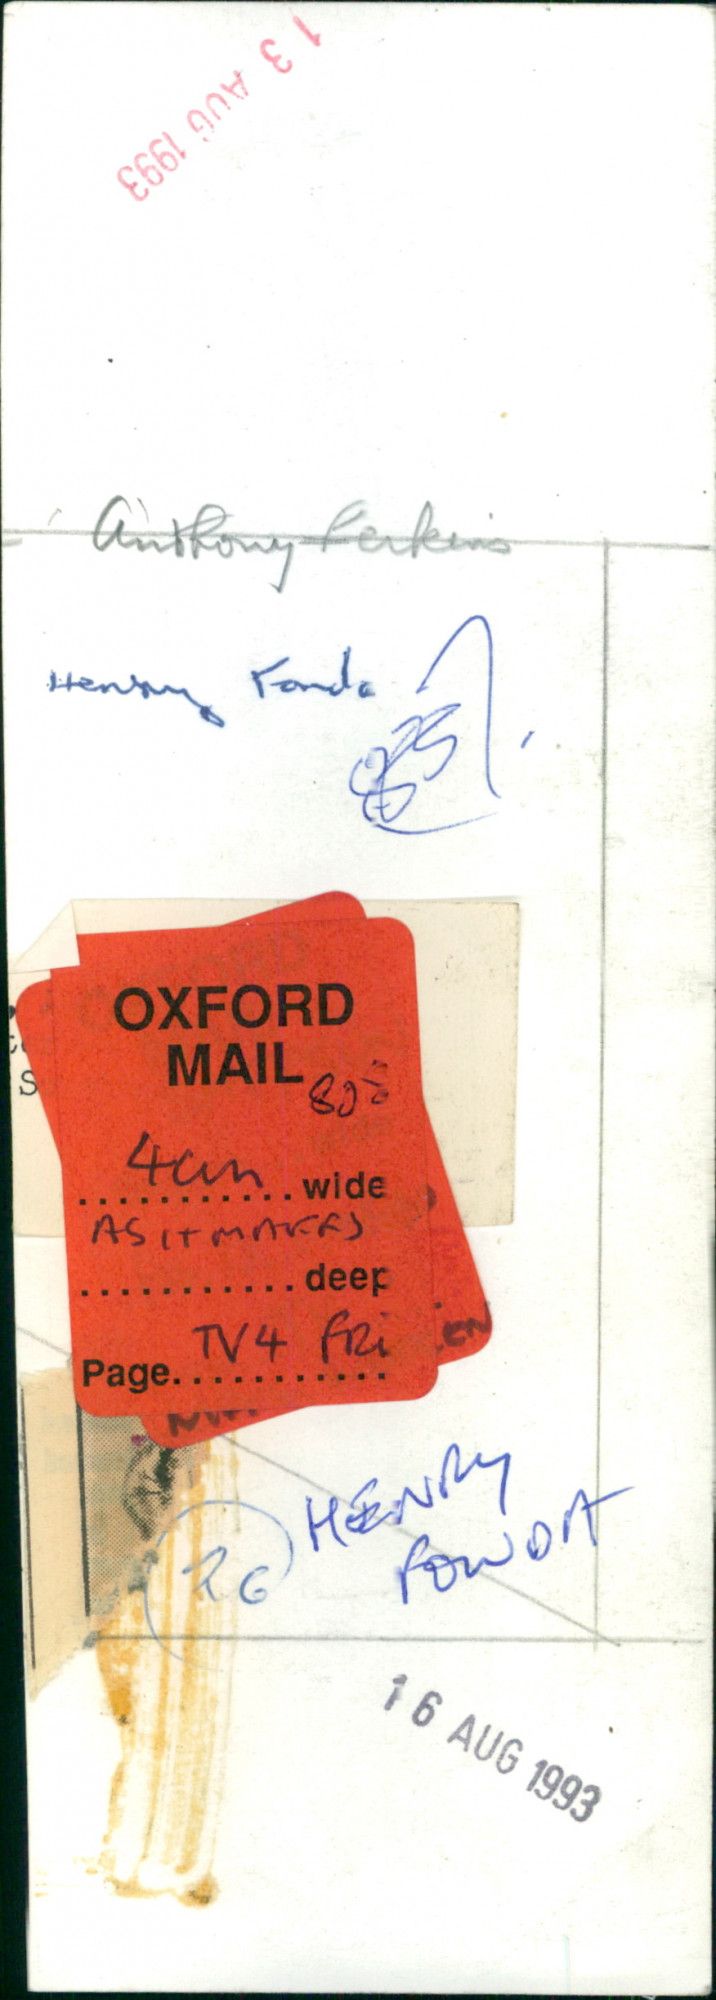 13 AUG 1993
Anthony Perkins
Henry Fonda
OXFORD
MAIL
4cm wide
AS IT MAKES
deep
Page. TV4 FRI
HENRY
FONDA
26
16 AUG 1993